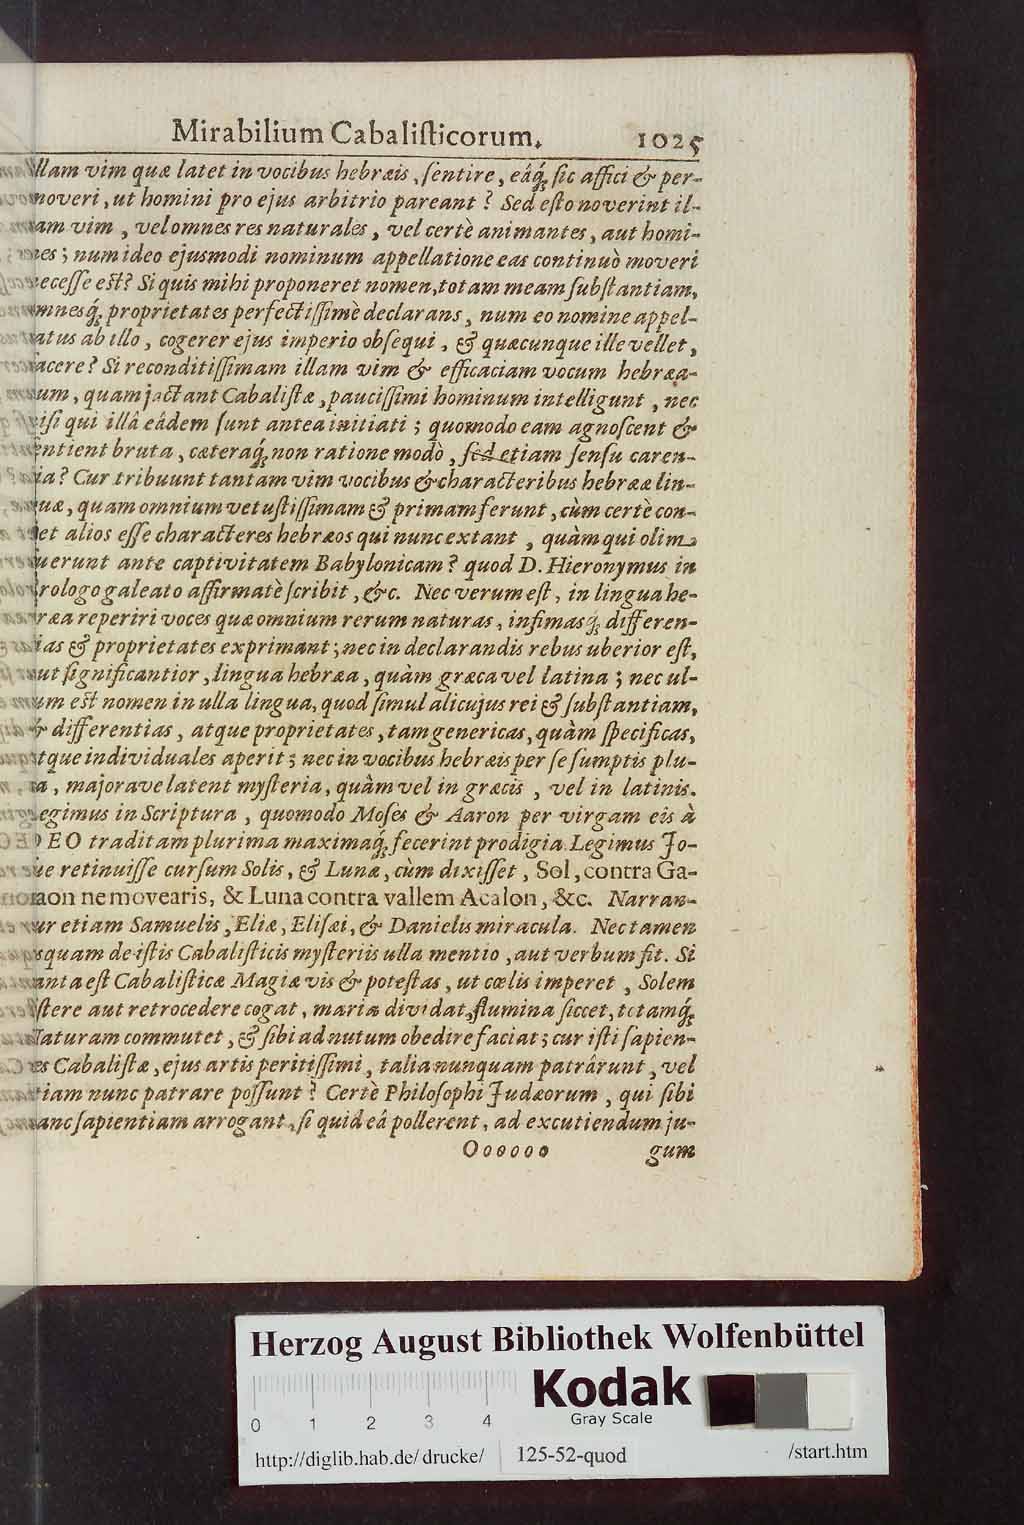 Mirabilium Cabaliſticorum. 1025
illam vim quæ latet in vocibus hebræis, ſentire, eâq́; ſic affici & per-
moveri, ut homini pro ejus arbitrio pareant? Sed eſto noverint il-
lam vim, vel omnes res naturales, vel certè animantes, aut homi-
nes; num ideo ejusmodi nominum appellatione eas continuò moveri
neceſſe eſt? Si quis mihi proponeret nomen, totam meam ſubſtantiam,
omnesq́; proprietates perfectiſſimè declarans, num eo nomine appel-
latus ab illo, cogerer ejus imperio obſequi, & quæcunque ille vellet,
facere? Si reconditiſſimam illam vim & efficaciam vocum hebræa-
rum, quam jactant Cabaliſtæ, pauciſſimi hominum intelligunt, nec
niſi qui illâ eâdem ſunt antea initiati; quomodo eam agnoſcent &
ſentient bruta, cæteraq́; non ratione modò, ſed etiam ſenſu caren-
tia? Cur tribuunt tantam vim vocibus & characteribus hebrææ lin-
guæ, quam omnium vetuſtiſſimam & primam ferunt, cùm certè con-
ſtet alios eſſe characteres hebræos qui nunc extant, quàm qui olim
fuerunt ante captivitatem Babylonicam? quod D. Hieronymus in
Prologo galeato affirmatè ſcribit, &c. Nec verum eſt, in lingua he-
bræa reperiri voces quæ omnium rerum naturas, infimasq́; differen-
tias & proprietates exprimant; nec in declarandis rebus uberior eſt,
aut ſignificantior, lingua hebræa, quàm græca vel latina; nec ul-
lum eſt nomen in ulla lingua, quod ſimul alicujus rei & ſubſtantiam,
& differentias, atque proprietates, tam genericas, quàm ſpecificas,
atque individuales aperit; nec in vocibus hebræis per ſe ſumptis plu-
ra, majorave latent myſteria, quàm vel in græcis, vel in latinis.
Legimus in Scriptura, quomodo Moſes & Aaron per virgam eis à
DEO traditam plurima maximaq́; fecerint prodigia. Legimus Jo-
ſue retinuiſſe curſum Solis, & Lunæ, cùm dixiſſet, Sol, contra Ga-
baon ne movearis, & Luna contra vallem Acalon, &c. Narran-
tur etiam Samuelis, Eliæ, Eliſæi, & Danielis miracula. Nec tamen
usquam de iſtis Cabaliſticis myſteriis ulla mentio, aut verbum fit. Si
tanta eſt Cabaliſticæ Magiæ vis & poteſtas, ut cœlis imperet, Solem
ſiſtere aut retrocedere cogat, maria dividat, flumina ſiccet, totamq́;
Naturam commutet, & ſibi ad nutum obedire faciat; cur iſti ſapien-
tes Cabaliſtæ, ejus artis peritiſſimi, talia nunquam patrârunt, vel
etiam nunc patrare poſſunt? Certè Philoſophi Judæorum, qui ſibi
hanc ſapientiam arrogant, ſi quid eâ pollerent, ad excutiendum ju-
Oooooo gum
Herzog August Bibliothek Wolfenbüttel
Kodak
Gray Scale
0 1 2 3 4
http://diglib.hab.de/drucke/ 125-52-quod /start.htm